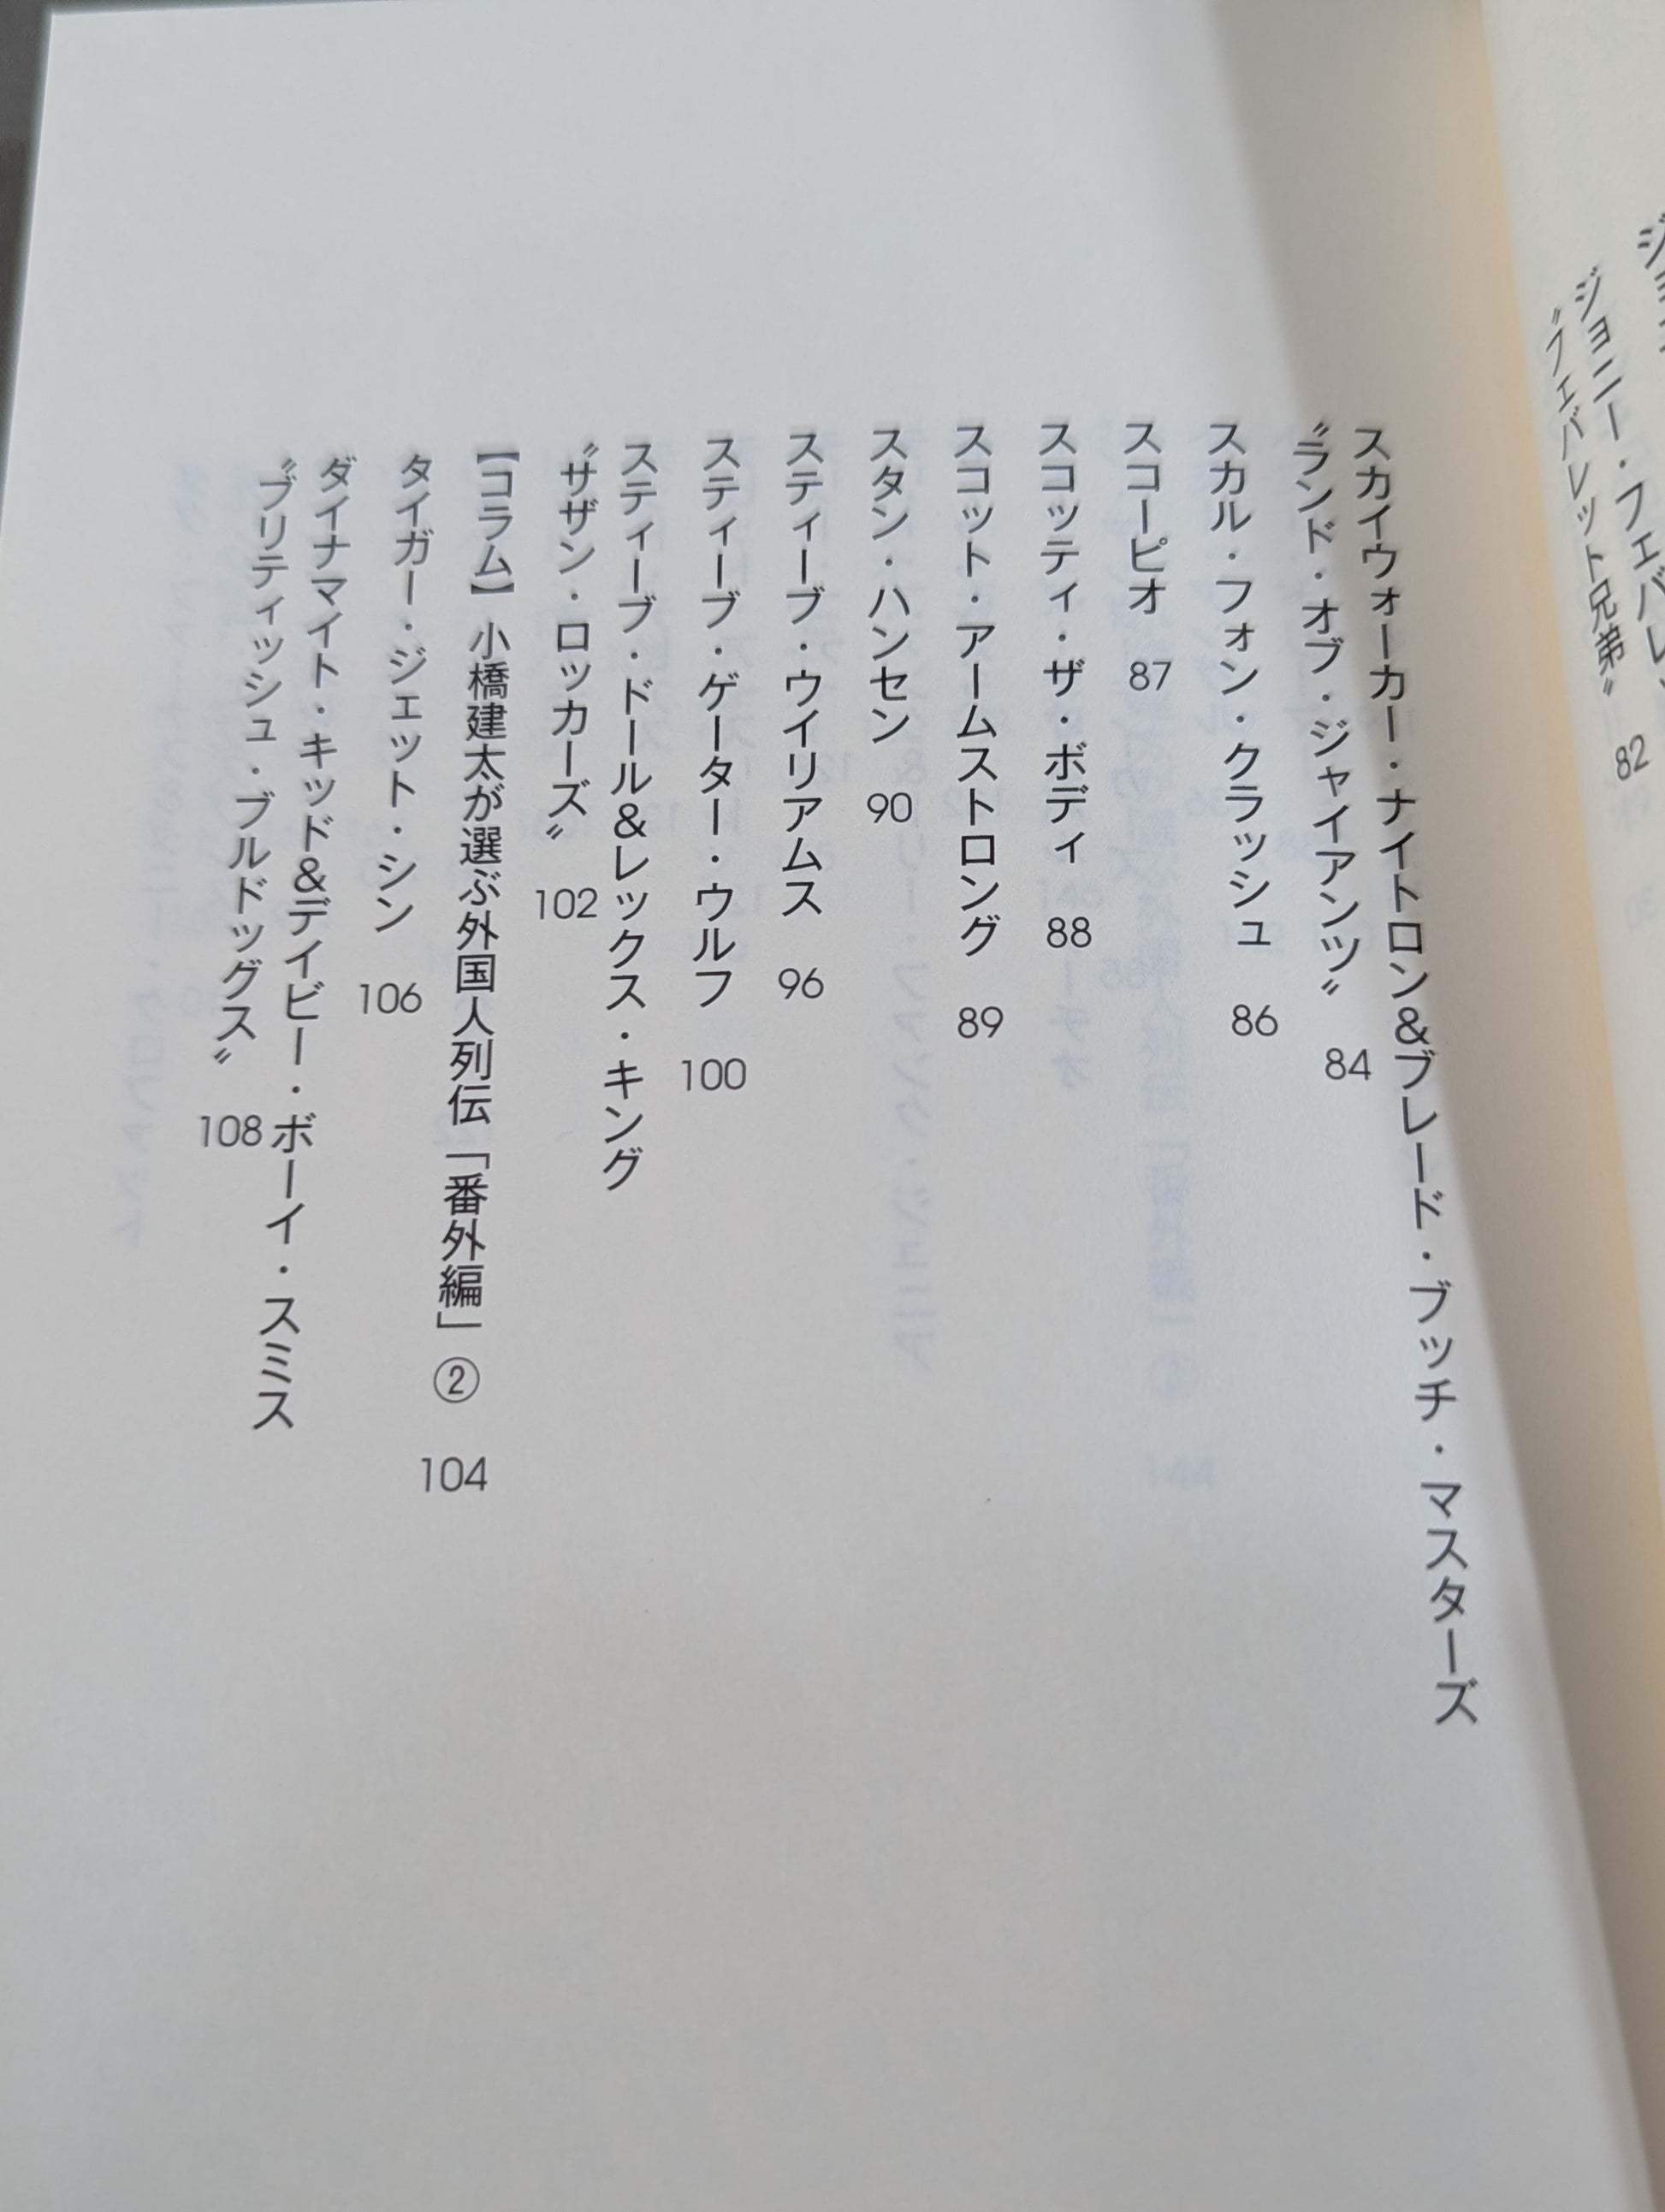 ジョニー・フェバレ
〝フェバレット兄弟〟 82
スカイウォーカー・ナイトロン&ブレード・ブッチ・マスターズ
〝ランド・オブ・ジャイアンツ〟 84
スカル・フォン・クラッシュ 86
スコーピオ 87
スコッティ・ザ・ボディ 88
スコット・アームストロング 89
スタン・ハンセン 90
スティーブ・ウイリアムス 96
スティーブ・ゲーター・ウルフ 100
スティーブ・ドール&レックス・キング
〝サザン・ロッカーズ〟 102
【コラム】小橋建太が選ぶ外国人列伝「番外編」② 104
タイガー・ジェット・シン 106
ダイナマイト・キッド&デイビー・ボーイ・スミス
〝ブリティッシュ・ブルドッグス〟 108